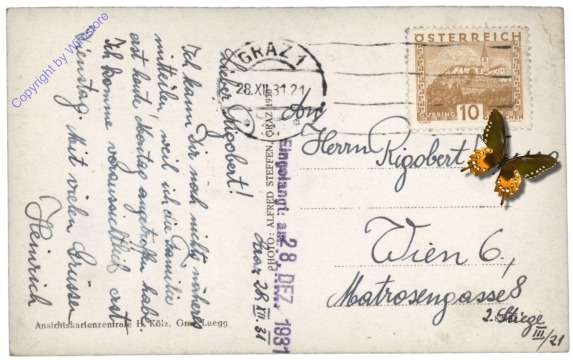 Copyright by Wikstore
GRAZ 1
28.XII.31.21
ÖSTERREICH
10
GÜSSING
GROSCHEN
An
Herrn Rigobert
Wien 6,
Matrosengasse 8
2. Stiege
III/21
Lieber Rigobert!
Ich kann Dir noch nichts näheres
mitteilen, weil ich die Familie
erst heute Montag angetroffen habe.
Ich komme voraussichtlich erst
Dienstag. Mit vielen Grüssen
Heinrich
Graz 28 XII 31
Eingelangt: am
28. DEZ. 1931
PHOTO: ALFRED STEFFEN, GRAZ
Ansichtskartenzentrale H. Kölz, Graz-Luegg